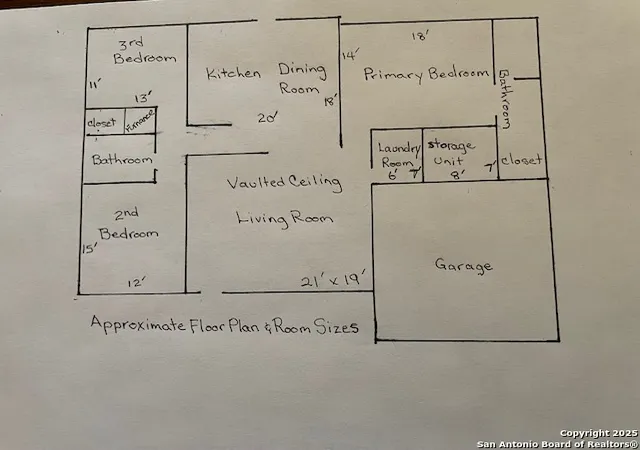 3rd
Bedroom
11'
13'
closet
Furnance
Bathroom
2nd
Bedroom
15'
12'
Kitchen Dining
Room
18'
20'
14'
18'
Primary Bedroom
Bathroom
Laundry
Room
6' 7'
Storage
Unit
8' 7'
closet
Vaulted Ceiling
Living Room
21' x 19'
Garage
Approximate Floor Plan & Room Sizes
Copyright 2025
San Antonio Board of Realtors®